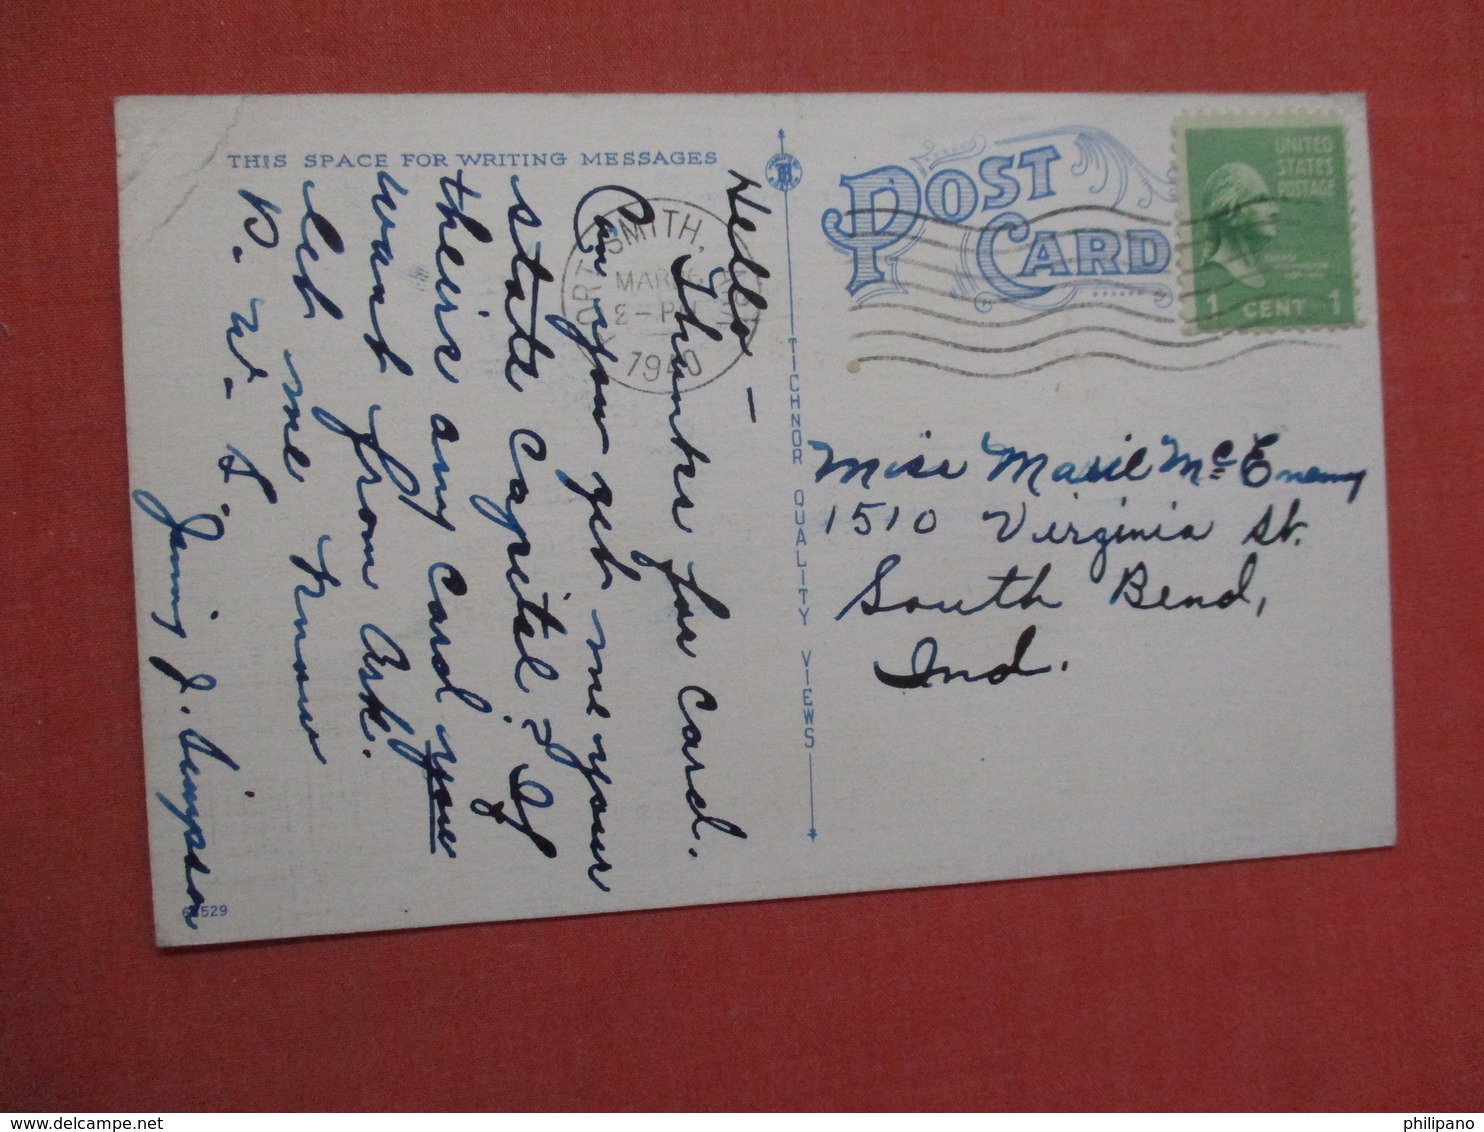 THIS SPACE FOR WRITING MESSAGES
Hello —
Thanks for card.
Can you get me your
state Capitel? If
theirs any card you
want from Ark.
let me know
P. W. S.
Jimmy J. Simpson
63529
FORT SMITH, ARK
MAR 6
2-PM
1940
TICHNOR QUALITY VIEWS
POST
CARD
UNITED
STATES
POSTAGE
1 CENT 1
Miss Marie McEneny
1510 Virginia St.
South Bend,
Ind.
philipano